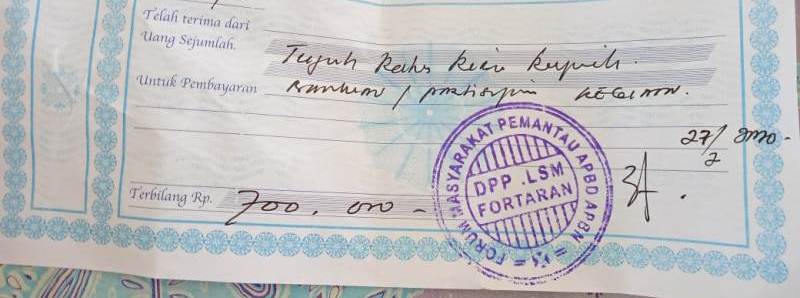 Telah terima dari
Uang Sejumlah.
Tujuh Ratus Ribu Rupiah.
Untuk Pembayaran
Bantuan / partisipasi KEGIATAN.
27/2 2020 -
Terbilang Rp. 700.000 -
FORUM MASYARAKAT PEMANTAU APBD APBN
DPP .LSM
FORTARAN